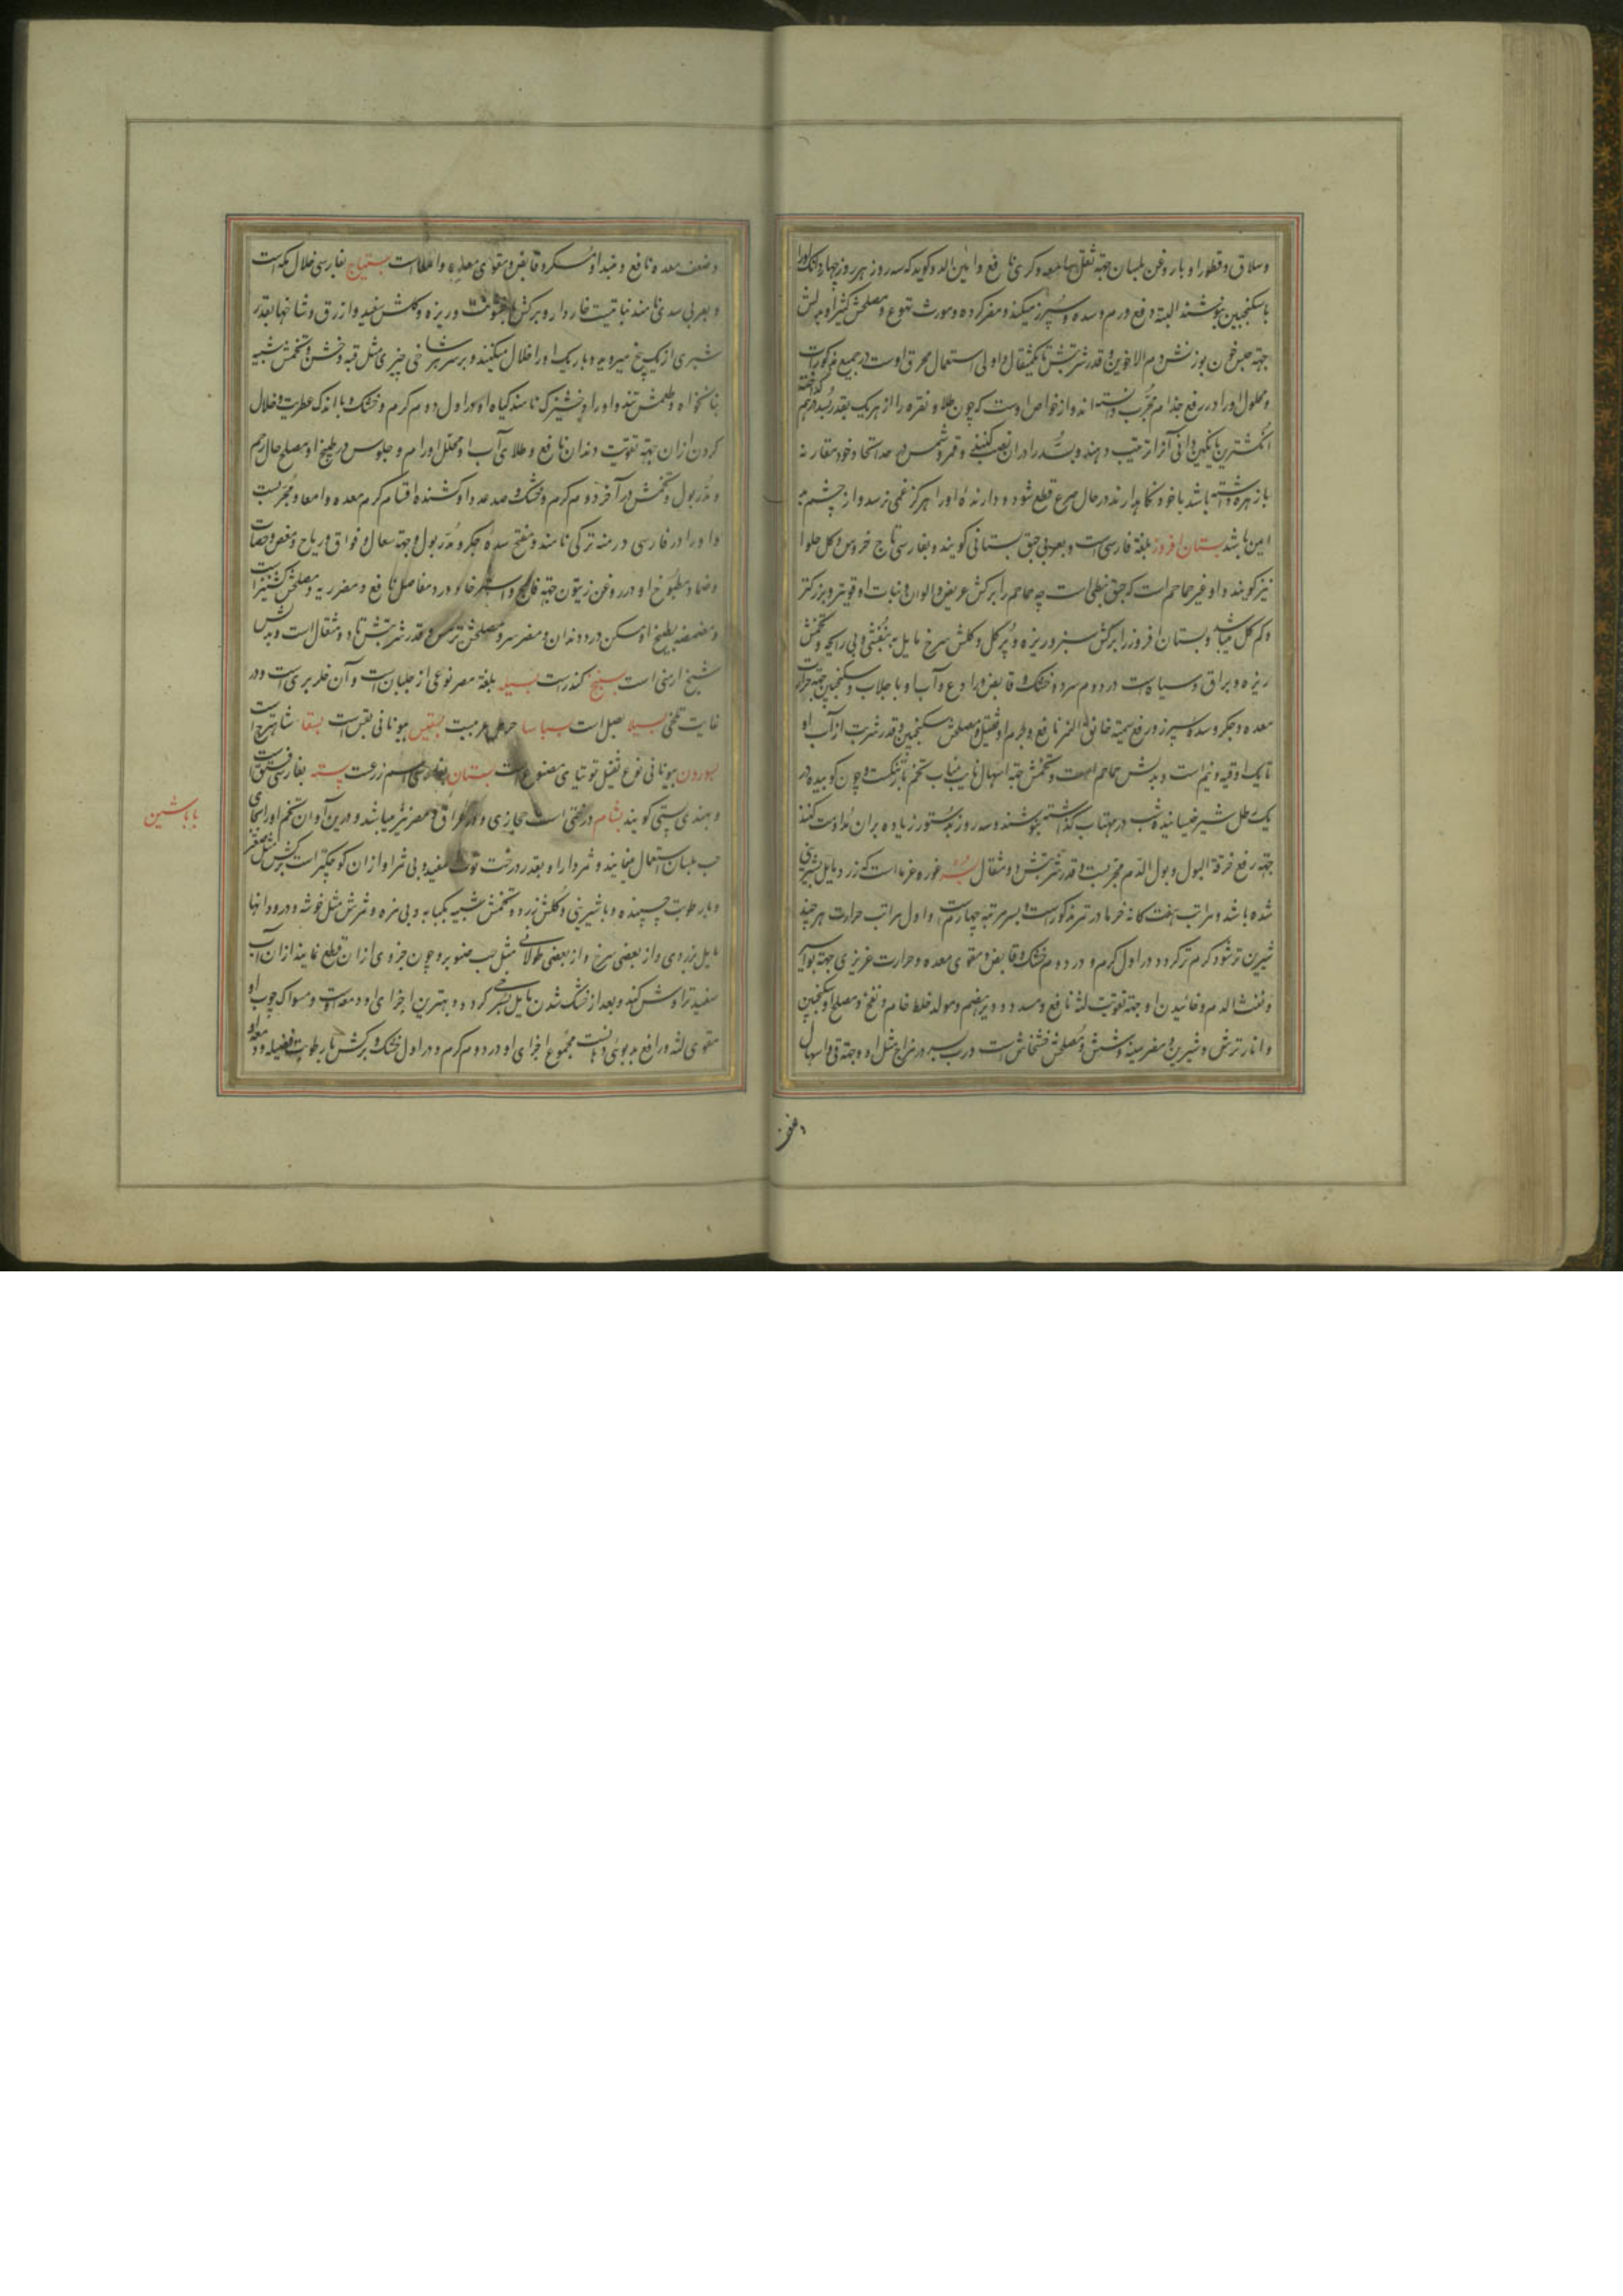 وسلاق وقطور او با روغن بلسان جهة ثقل سامعه وکری نافع وامین الدوله کوید که سه روز هر روز چهار دانک اورا
باسکنجبین بنوشند البته رفع ورم وسده وسپرز میکند ومضر کرده ومورث تهوع ومصلحش کثیرا وبدلش
جهة حبس خون بوزنش دم الاخوین وقدر شربتش تا یکمثقال واولی استعمال محرق اوست در جمیع مذکورات
ومحلول اورا در رفع جذام مجرب دانسته اند واز خواص اوست که چون طلا ونقره را از هریک بقدر درهم
انکشترین با نکین وانی آنرا ترتیب دهند وبسد را در ان نصب کنند وقمر وشمس در حد اتحاد خود مقارنه
با زهره داشته باشد باخود نکاهدارند در حال صرع قطع شود ودارنده اورا هرکز غمی نرسد واز چشم بد
ایمن باشد بستان افروز بلغة فارسی است وبعربی حبق بستانی کویند وبفارسی تاج خروس وکل حلوا
نیز کویند واو غیر حماحم است که حبق نبطی است چه حماحم را برکش عریض والوان ونبات او قویتر وبزرکتر
وکم کل میباشد وبستان افروز را برکش سبز وریزه وپر کل وکلش سرخ مایل به بنفشی وبی رایحه وتخمش
ریزه وبراق وسیاه است در دوم سرد وخشک وقابض ورادع وآب او با جلاب وسکنجبین جهة حرارت
معده وجکر وسده سپرز ورفع سمیة خانق النمر نافع وجرم او ثقیل ومصلحش سکنجبین وقدر شربت از آب او
تا یک اوقیه ونیم است وبدلش حماحم است وتخمش جهة اسهال نایب مناب تخم بارتنکست وچون کوبیده در
یک رطل شیر خیسانیده شب در مهتاب کذاشته بنوشند وسه روز بدستور زیاده بران مداومت کنند
جهة رفع حرقة البول وبول الدم مجربست وقدر شربتش دو مثقال بسر غوره خرما است که زرد ومایل بشیرینی
شده باشد ومراتب هفت کانه خرما در تمر مذکور است وبسر مرتبه چهارم است واول مراتب حرارت هر چند
شیرین تر شود کرم تر کردد در اول کرم ودر دوم خشک وقابض ومقوی معده وحرارت غریزی جهة بواسیر
ونفث الدم وخائیدن او جهة تقویت لثه نافع ومسدد ودیر هضم ومولد خلط خام ونفخ ومصلح او سکنجبین
وانار ترش وشیرین ومضر سینه وشش ومصلحش خشخاش است ورب بسر در مزاج مثل او وجهة قی واسهال
وضعف
وضعف معده نافع ونبیذ او مسکر وقابض ومقوی معده وامعا است بستیاج بفارسی خلال مکه است
وبعربی سدی نامند نباتیست خاردار وبرکش با خشونت وریزه وکلش سفید وازرق وشاخها بقدر
شبری از یک بیخ میروید وباریک اورا خلال میکنند وبر سر هر شاخی چیزی مثل قبه وخشن وتخمش شبیه
بنانخواه وطعمش تند واورا وخشیزک نامند کیاه او در اول دوم کرم وخشک با اندک عطریت وخلال
کردن از ان جهة تقویت دندان نافع وطلای آب او محلل اورام وجلوس در طبیخ او مصلح حال رحم
ومدر بول وتخمش در آخر دوم کرم وخشک وکشنده اقسام کرم معده وامعا ومجربست
واورا در فارسی درمنه ترکی نامند ومفتح سده جکر ومدر بول وجهة سعال وفواق وریاح ومغص وحصات
وضماد مطبوخ او در روغن زیتون جهة فالج واسترخا ودرد مفاصل نافع ومضر ریه ومصلحش کشنیز است
ومضمضه بطبیخ او مسکن درد دندان ومضر سر ومصلحش ترمس وقدر شربتش تا دو مثقال است وبدلش
شیح ارمنی است بسبج کندر است بسیله بلغة مصر نوعی از جلبان است وآن خلر بری است ودر
غایت تلخی بسیلا بصل است بسباسا حرمل عربیست بسقیس بیونانی بقس است بسقا شاهترج است
بسوردون بیونانی نوع ثقیل توتیای مصنوع است بستان بفارسی اسم زرعت پسته بفارسی فستق است
وبهندی پستی کویند بشام درختی است حجازی ودر عراق ومصر نیز میباشد ودرین آوان تخم اورا بجای
حب بلسان استعمال مینمایند وثمردار او بقدر درخت توت سفید وبی ثمر او از ان کوچکتر است برکش مثل صعتر
وبا رطوبت چسپنده وبا شیرینی وکلش زرد وتخمش شبیه بکبابه وبی مزه وثمرش مثل خوشه ودرو دانها
مایل بزردی واز بعضی سرخ واز بعضی طولانی مثل حب صنوبر وچون جزوی از ان قطع نمایند از ان آب
سفید تراوش کند وبعد از خشک شدن مایل بسرخی کردد وبهترین اجزای او دمعه اوست ومسواک چوب او
مقوی لثه ورافع بدبوئی دهانست مجموع اجزای او در دوم کرم ودر اول خشک وبرکش با رطوبت فضیله ودمعه او
باباشین